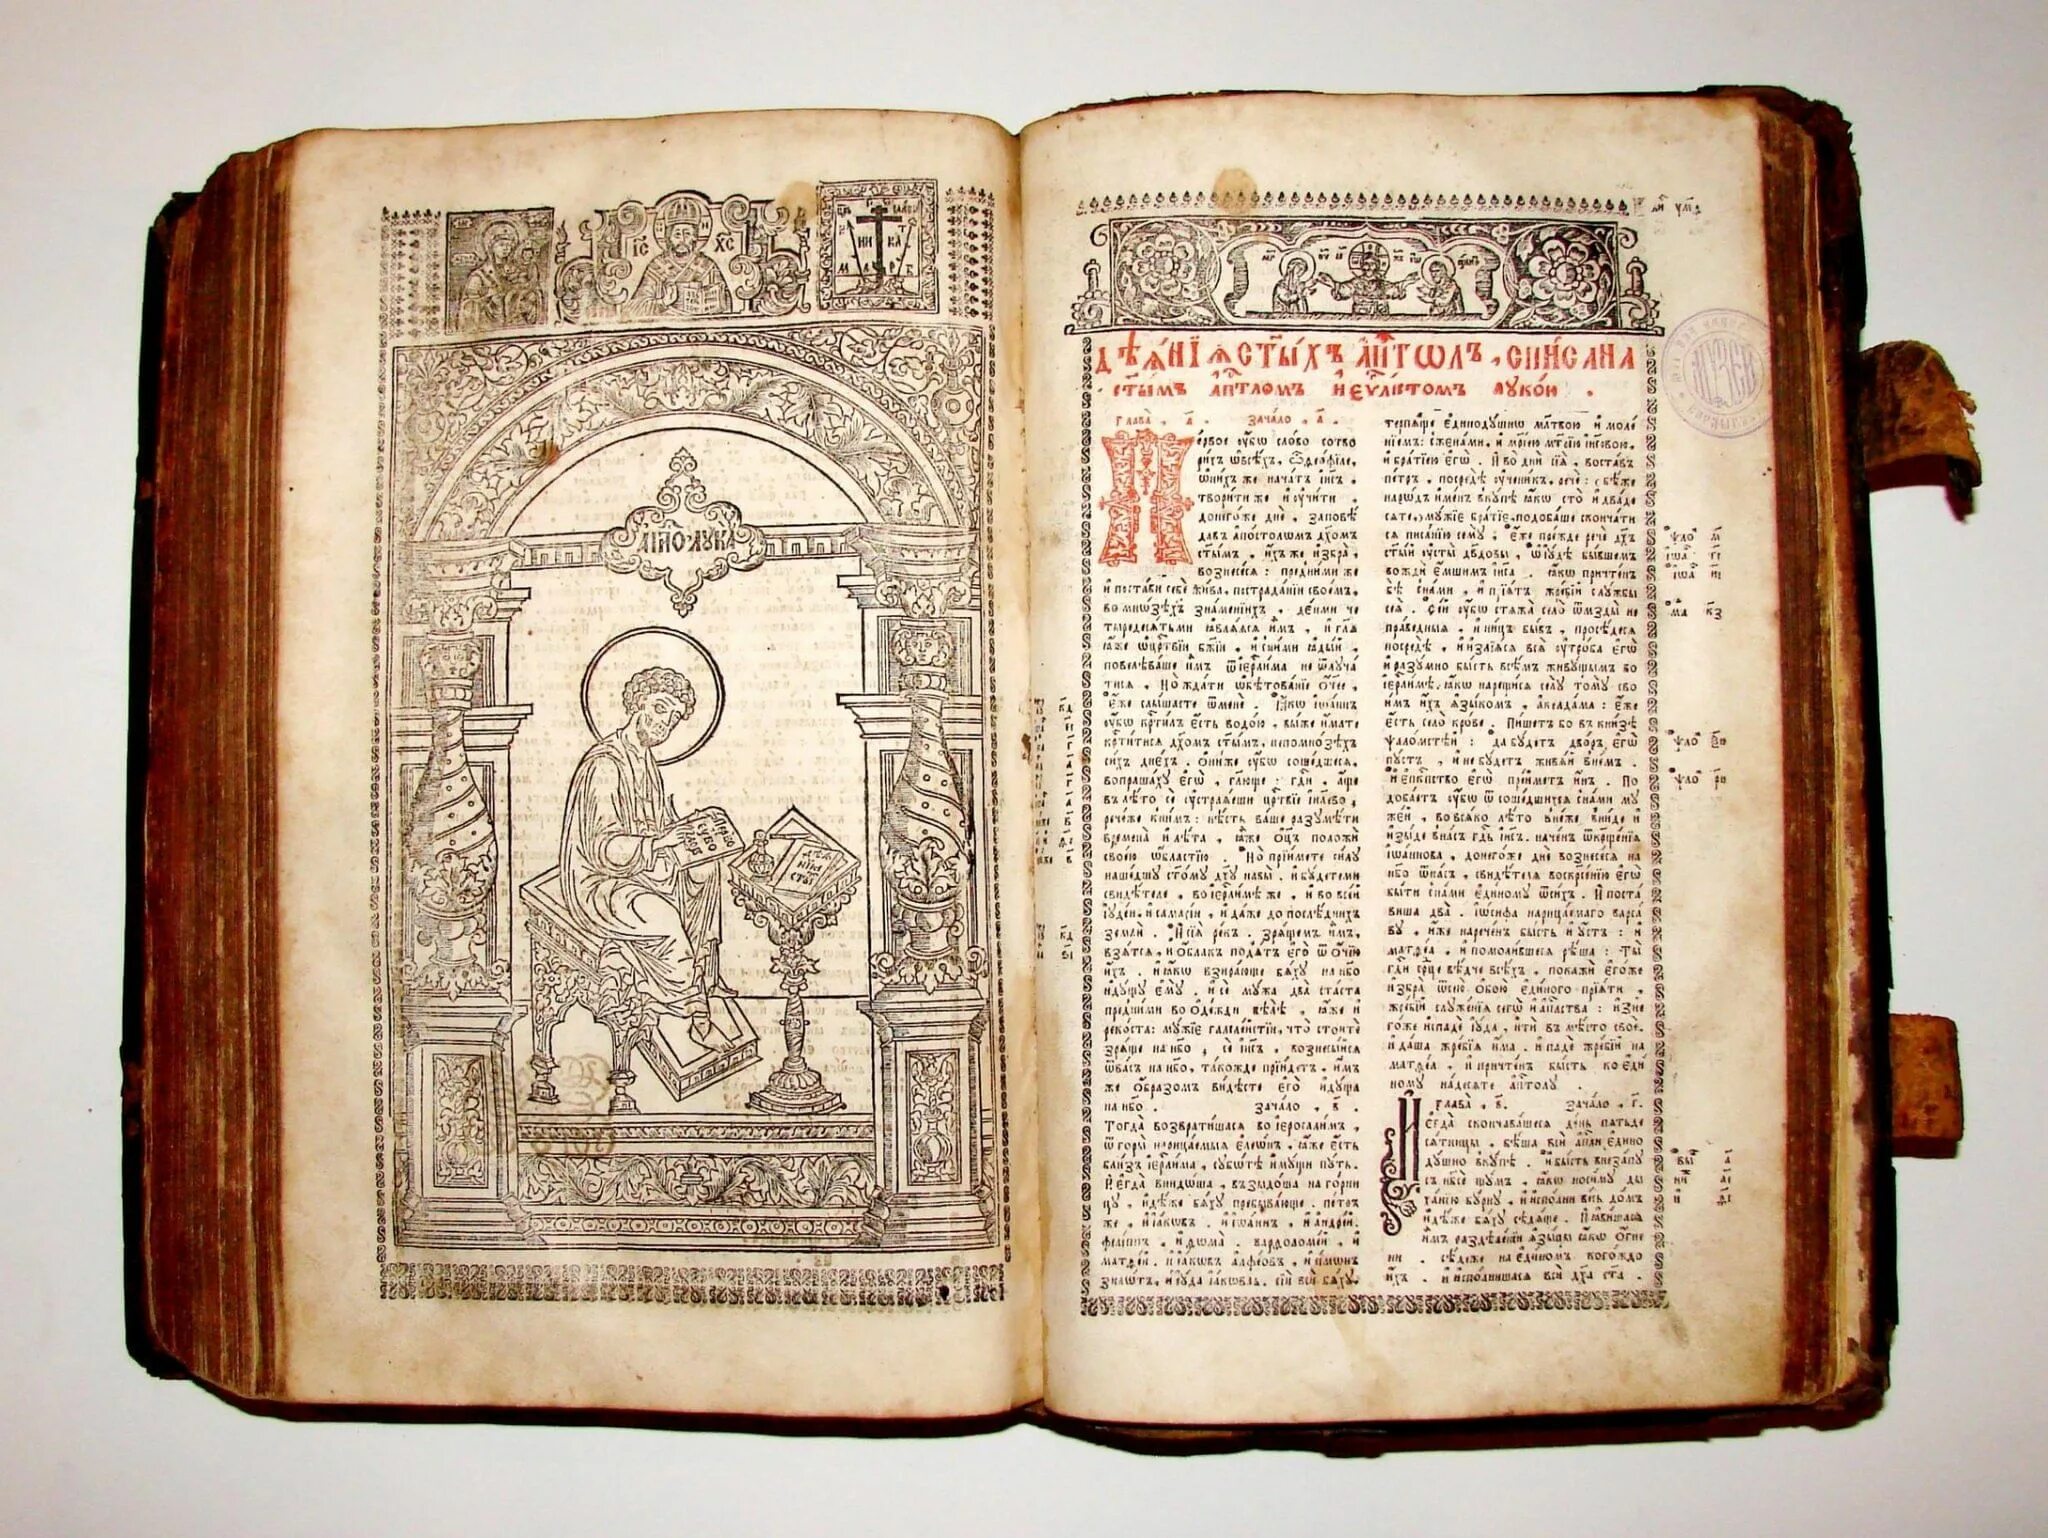 ІС ХС
НИ КА
АП҃ЛО ЛУКА
Первое
ѹбѡ
слово
ДѢѦ́НІѦ СТ҃Ы́ХЪ АП҃ТОЛЪ, СПИ́САНА
ст҃ы́мъ а҆п҃тломъ и҆ е҆ѵ҃лістомъ лꙋко́ю .
глава̀ , а҃ . зача́ло , а҃ .
Пе́рвое ѹ҆́бѡ сло́во сотво
ри́хъ ѡ҆ всѣ́хъ, Ѽ ѳео́филе,
ѡ҆ ни́хъ же нача́тъ і҆и҃съ,
твори́ти же и҆ ѹ҆чи́ти .
донего́же дн҃е , запо́вѣ
давъ апо́столомъ дх҃омъ
ст҃ы́мъ , и҆́хъ же и҆збра̀ ,
вознесе́сѧ : пред̾ ни́ми же
и҆ поста́ви себѐ жи́ва , по страда́нїи свое́мъ ,
во мно́зѣхъ зна́менїихъ , де́нми че
ты́редесѧтьми ꙗ҆влѧ́ѧсѧ и҆̀мъ , и҆ гл҃ѧ
ꙗ҆́же ѡ҆ црⷭ҇твїи бж҃їи . и҆ с ни́ми ꙗ҆ды́й .
повелѣва́ше и҆̀мъ ѿ і҆ерⷭ҇ли́ма не ѿлꙋча́
тисѧ , но жда́ти ѡ҆бѣтова́нїе о҆́ч҃ее ,
Е҆́же слы́шасте ѿ менѐ . Ꙗ҆́кѡ і҆ѡа́ннъ
ѹ҆́бѡ крⷭ҇ти́лъ є҆́сть водо́ю , вы́же и҆́мате
крⷭ҇ти́тисѧ дх҃омъ ст҃ы́мъ , не по мно́зѣхъ
си́хъ дне́хъ . Ѻ҆ни́же ѹ҆́бѡ соше́дшесѧ ,
вопраша́хꙋ є҆го̀ , гл҃юще : гд҃и , а҆́ще
в лѣ́то сѐ ѹ҆строѧ́еши црⷭ҇твїе і҆и҃лево ,
рече́же к ни́мъ : нѣ́сть ва́ше разꙋмѣ́ти
времена̀ и҆ лѣ́та , ꙗ҆́же ѻ҆ц҃ъ положѝ
свое́ю ѡ҆бла́стїю . Но прїи́мете си́лꙋ
наше́дшꙋ ст҃о́мꙋ дх҃ꙋ на вы̀ . и҆ бꙋ́дете мѝ
свидѣ́теле , во і҆ерⷭ҇ли́мѣ же , и҆ во все́й
і҆ꙋде́и , и҆ самарі́и , и҆ да́же до послѣ́днихъ
землѝ . И҆ сїѧ̀ ре́къ . зрѧ́щемъ и҆̀мъ ,
взѧ́тсѧ , и҆ ѻ҆́блакъ под̾ѧ́тъ є҆го̀ ѿ ѻ҆чїю̀
и҆́хъ . и҆ ꙗ҆́кѡ взира́юще бѧ́хꙋ на нб҃о
и҆дꙋ́щꙋ є҆мꙋ̀ . и҆ сѐ мꙋ́жа два̀ ста́ста
пред̾ ни́ми во ѻ҆де́жди бѣ́лѣ , ꙗ҆́же и҆
реко́ста : мꙋ́жїе галїле́йстїи, что̀ стоитѐ
зрѧ́ще на нб҃о , се́й і҆и҃съ , вознесы́йсѧ
ѿ ва́съ на нб҃о, та́кожде прїи́детъ , и҆́мъ
же ѻ҆́бразомъ ви́дѣсте є҆го̀ и҆дꙋ́ща
на нб҃о . зача́ло , в҃ .
Тогда̀ возврати́шасѧ во і҆ерѹсали́мъ ,
ѿ горы̀ нарица́емыѧ є҆лео́нъ . ꙗ҆́же є҆́сть
бли́зъ і҆ерⷭ҇ли́ма , сꙋббѡ́тѣ и҆мꙋ́щи пꙋ́ть .
И҆ є҆гда̀ внидо́ша , взыдо́ша на го́рни
цꙋ , и҆дѣ́же бѧ́хꙋ пребыва́юще . пе́тръ
же , и҆ і҆а́ковъ . и҆ і҆ѡа́ннъ , и҆ а҆ндре́й .
фили́ппъ . и҆ ѳѡма̀ . варѳоломе́й , и҆
матѳе́й . и҆ і҆а́ковъ а҆лфе́овъ , и҆ си́мѡнъ
зило́тъ , и҆ і҆ꙋ́да і҆а́ковль. сїѝ всѝ бѧ́хꙋ
терпѧ́ще є҆динодꙋ́шнѡ мл҃твою и҆ моле́
нїемъ : с жена́ми, и҆ мр҃їею мт҃рїю і҆и҃совою,
и҆ бра́тїею є҆гѡ̀ . И҆ во днѝ сїѧ̀ , воста́въ
пе́тръ , посредѣ̀ ѹ҆ченикъ , речѐ : бѣ́же
наро́дъ и҆ме́нъ вкꙋ́пѣ ꙗ҆́кѡ сто̀ и҆ два́де
сѧте, мꙋ́жїе бра́тїе, подоба́ше сконча́ти
сѧ писа́нїю семꙋ̀ , Є҆́же пре́жде речѐ дх҃ъ
ст҃ы́й ѹ҆сты̀ дв҃довы , ѡ҆ і҆ꙋ́дѣ бы́вшемъ
вождѝ є҆́мшимъ і҆и҃са . ꙗ҆́кѡ причте́нъ
бѣ̀ с на́ми , и҆ прїѧ́тъ жре́бїй слꙋ́жбы
сеѧ̀ . Се́й ѹ҆́бѡ стѧжа̀ село̀ ѿ мзды̀ не
пра́ведныѧ , и҆ ни́цъ бы́въ , просѣ́десѧ
посредѣ̀ , и҆ и҆злїѧ́сѧ всѧ̀ ѹ҆тро́ба є҆гѡ̀
и҆ разꙋ́мно бы́сть всѣ̀мъ живꙋ́щымъ во
і҆ерⷭ҇ли́мѣ. ꙗ҆́кѡ нарещи́сѧ селꙋ̀ то́мꙋ сво
и́мъ и҆́хъ ѧзы́комъ , а҆келдама̀ : є҆́же
є҆́сть село̀ кро́ве . Пи́шетъ бо в кни́зѣ
ѱало́мстѣй : да бꙋ́детъ дво́ръ є҆гѡ̀
пꙋ́стъ , и҆ не бꙋ́детъ живꙋ́й в не́мъ .
и҆ є҆пи́скопство є҆гѡ̀ прїи́метъ и҆́нъ . По
доба́етъ ѹ҆́бѡ ѿ соше́дшихсѧ с на́ми мꙋ
же́й , во всѧ́ко лѣ́то в не́же , вни́де и҆
и҆зы́де в на́съ гд҃ь і҆и҃съ. наче́нъ ѿ крⷭ҇ще́нїѧ
і҆ѡа́ннова , донего́же днѐ вознесе́сѧ на
нб҃о ѿ на́съ , свидѣ́телѧ воскресе́нїю є҆гѡ̀
бы́ти с на́ми є҆ди́номꙋ ѿ си́хъ . И҆ поста́
виша два̀ . і҆ѡ́сифа нарица́емаго варса́
вꙋ , и҆́же нарече́нъ бы́сть і҆ꙋ́стъ : и҆
матѳе́а , и҆ помоли́вшесѧ рѣ́ша : ты̀
гд҃и срⷣцевѣ́дче всѣ́хъ , покажѝ є҆го́же
и҆збра̀ ѿ сею̀ ѻ҆бою̀ є҆ди́наго прїѧ́ти ,
жре́бїй слꙋже́нїѧ сегѡ̀ и҆ а҆п҃льства : и҆з не
го́же и҆спадѐ і҆ꙋ́да , и҆тѝ в мѣ́сто своѐ .
и҆ да́ша жре́бїѧ и҆́ма . и҆ падѐ жре́бїй на
матѳе́а , и҆ причте́нъ бы́сть ко є҆ди́
номꙋ на́десѧте а҆п҃толꙋ .
глава̀ , в҃ . зача́ло , г҃ .
И҆ є҆гда̀ сконча́вашесѧ де́нь пѧтьде
сѧ́тницы . бѣ́ша всѝ а҆п҃ли є҆дино
дꙋ́шно вкꙋ́пѣ . и҆ бы́сть внеза́пꙋ
с нб҃сѐ шꙋ́мъ , ꙗ҆́кѡ носи́мꙋ ды
ха́нїю бꙋ́рнꙋ , и҆ и҆спо́лни ве́сь до́мъ
и҆дѣ́же бѧ́хꙋ сѣдѧ́ще . И҆ ꙗ҆ви́шасѧ
и҆̀мъ раздѣле́ни ѧ҆зы́цы ꙗ҆́кѡ ѻ҆́гне
ни . сѣ́де же на є҆ди́номъ кого́ждо
и҆́хъ . и҆ и҆спо́лнишасѧ всѝ дх҃а ст҃а .
МУЗЕЙ